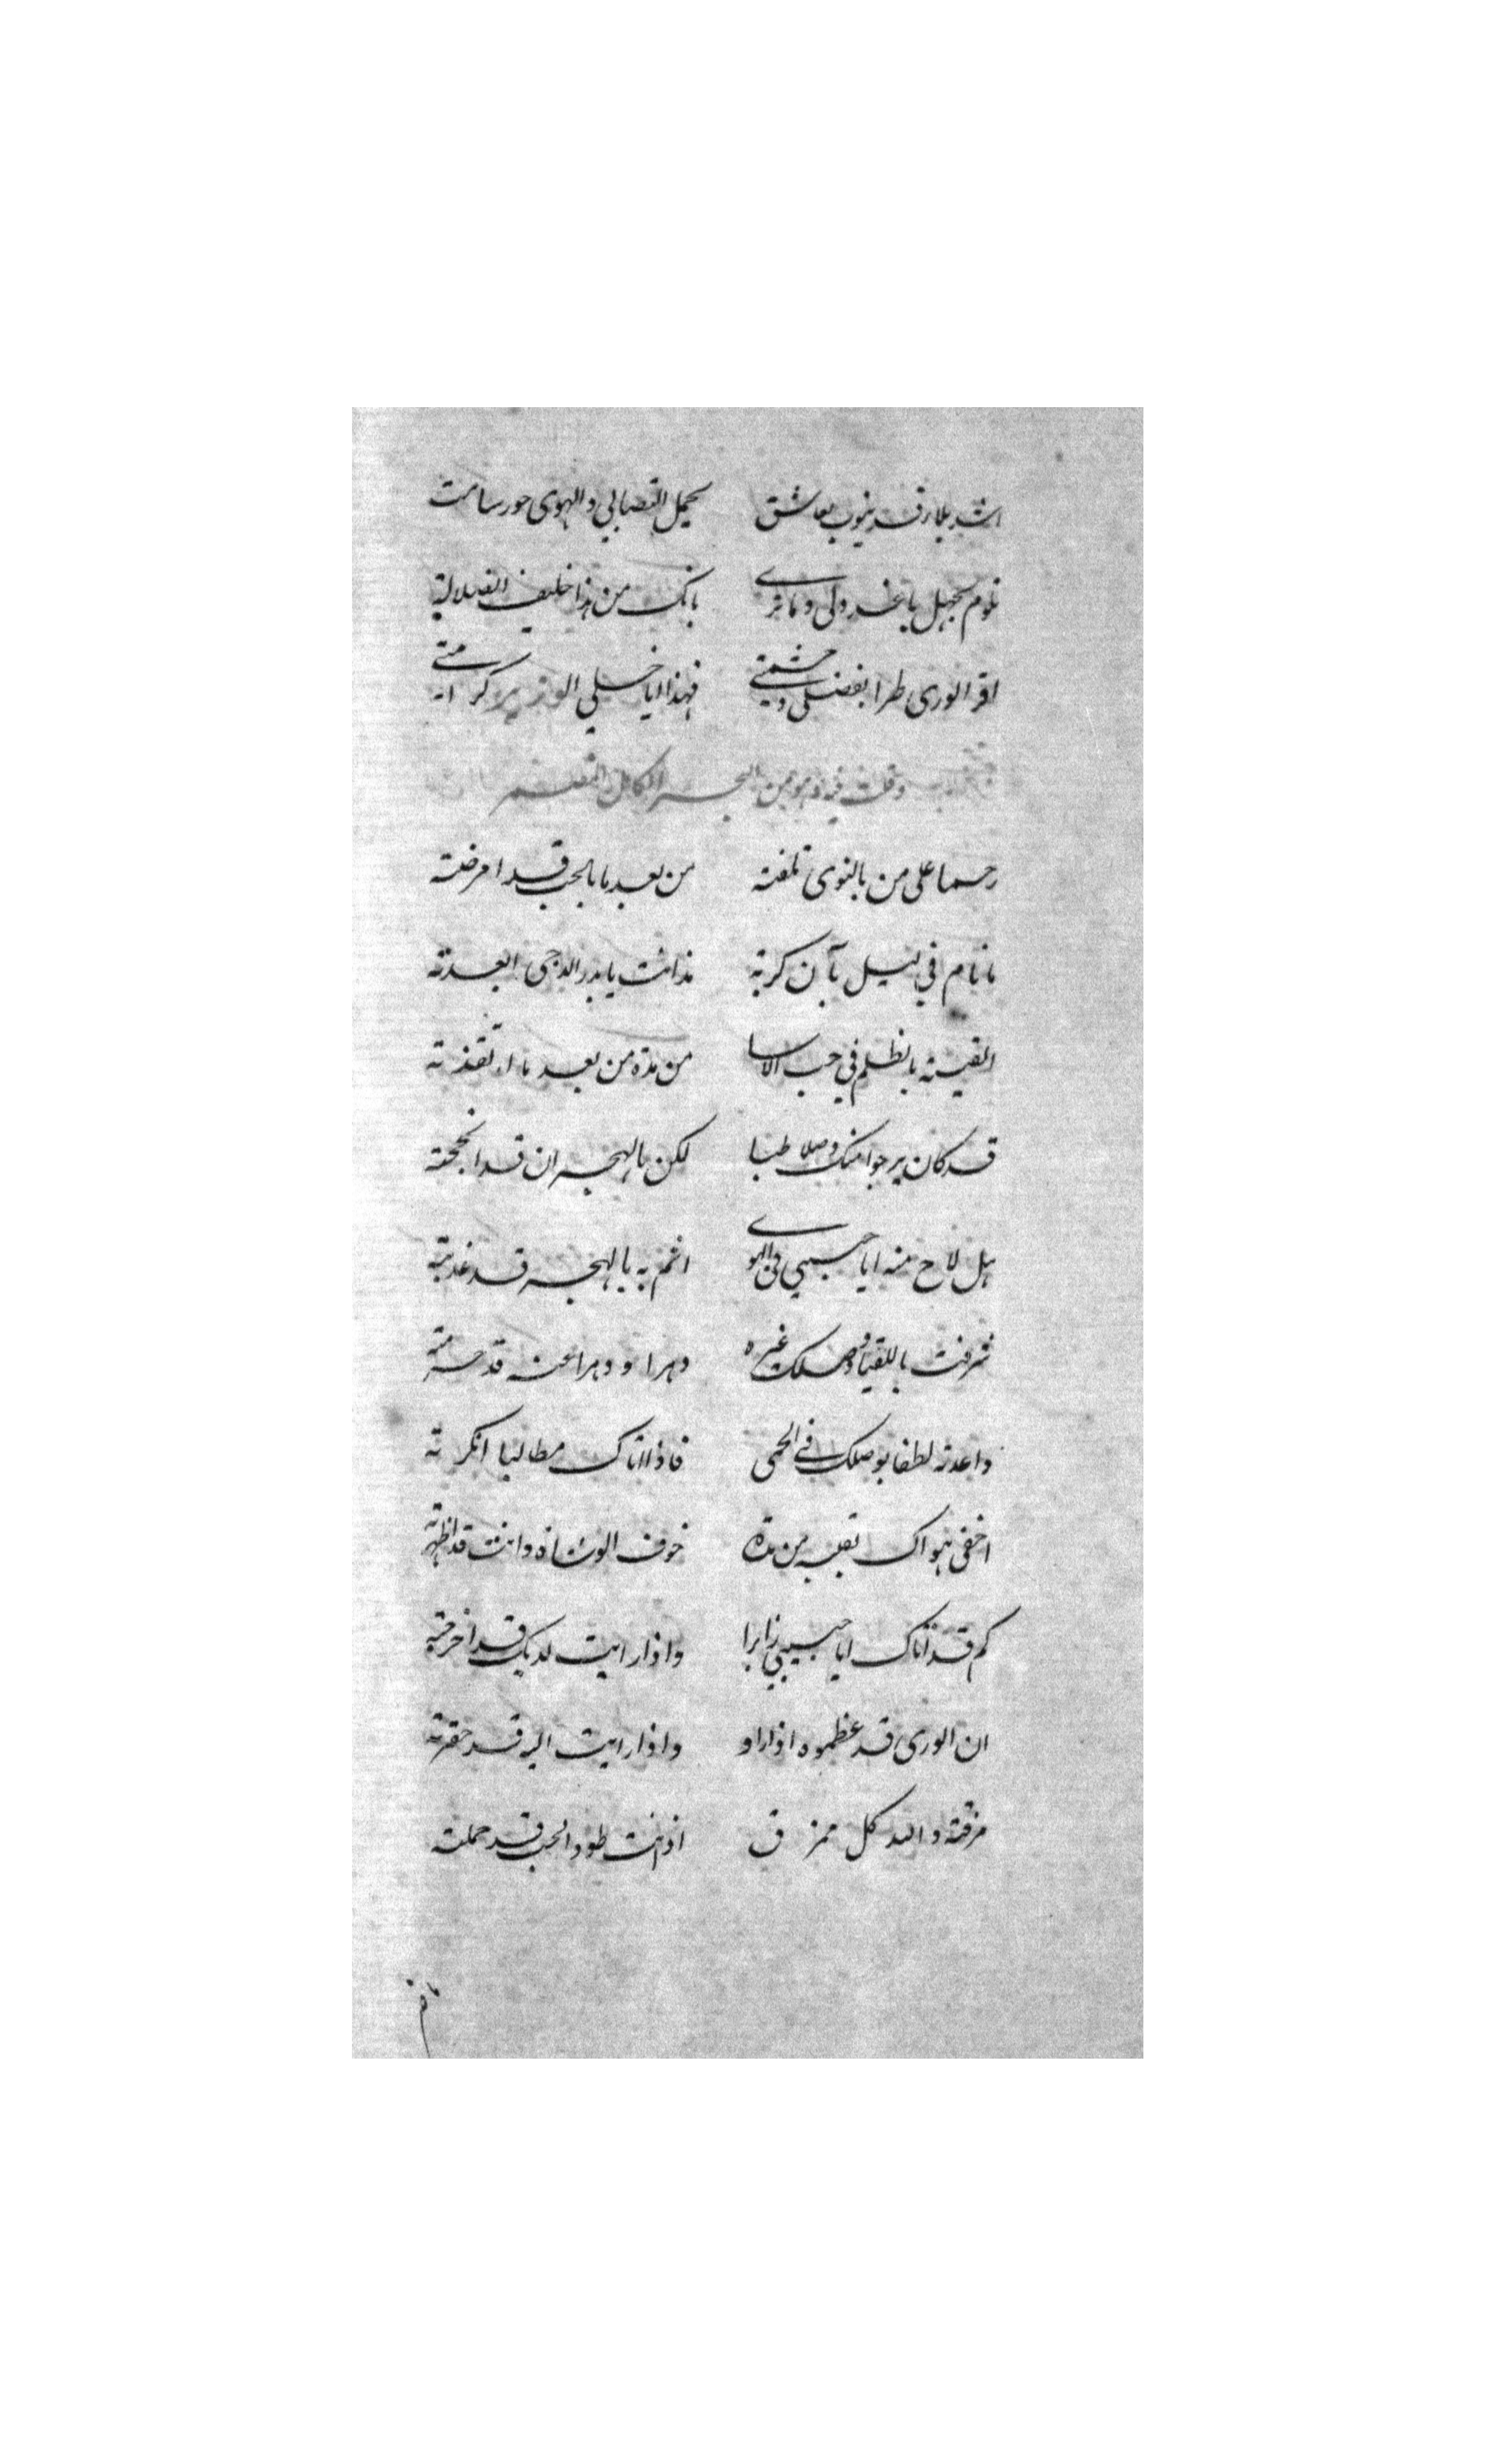 اشد بلاء قد ينوب بعاشق يحمل التصابي والهوى جور سامت
تلوم بجهل يا عذولي وما ترى بانك من هذا حليف الضلالة
اقر الورى طرا بفضلي وحشمتي فهذا ايا خلي الوزير كرامتي
وقلت فيه وهو من البحر الكامل
رحما على من بالنوى تلفته من بعد ما بالحب قد امرضته
ما نام في ليل بآن كربة مذ انت يا بدر الدجى ابعدته
القيته بالظلم في جب الاسا من مدة من بعد ما انقذته
قد كان يرجوا منك وصلا طيبا لكن بالهجران قد
هل لاح منه ايا حبيبي في الهوى اثم به بالهجر قد عذبته
شرفت باللقيا ووصلك غيره دهرا و دهرا عنه قد حرمته
واعدته لطفا بوصلك في الحمى فاذا اتاك مطالبا انكرته
اخفى هواك بقلبه من مدة خوف الوشاة وانت قد اظهرته
كم قد اتاك ايا حبيبي زايرا واذا رايت لديك قد اخرجته
ان الورى قد عظموه اذا راو واذا رايت اليه قد حقرته
مزقته والله كل ممزق اذ انت طود الحب قد حملته